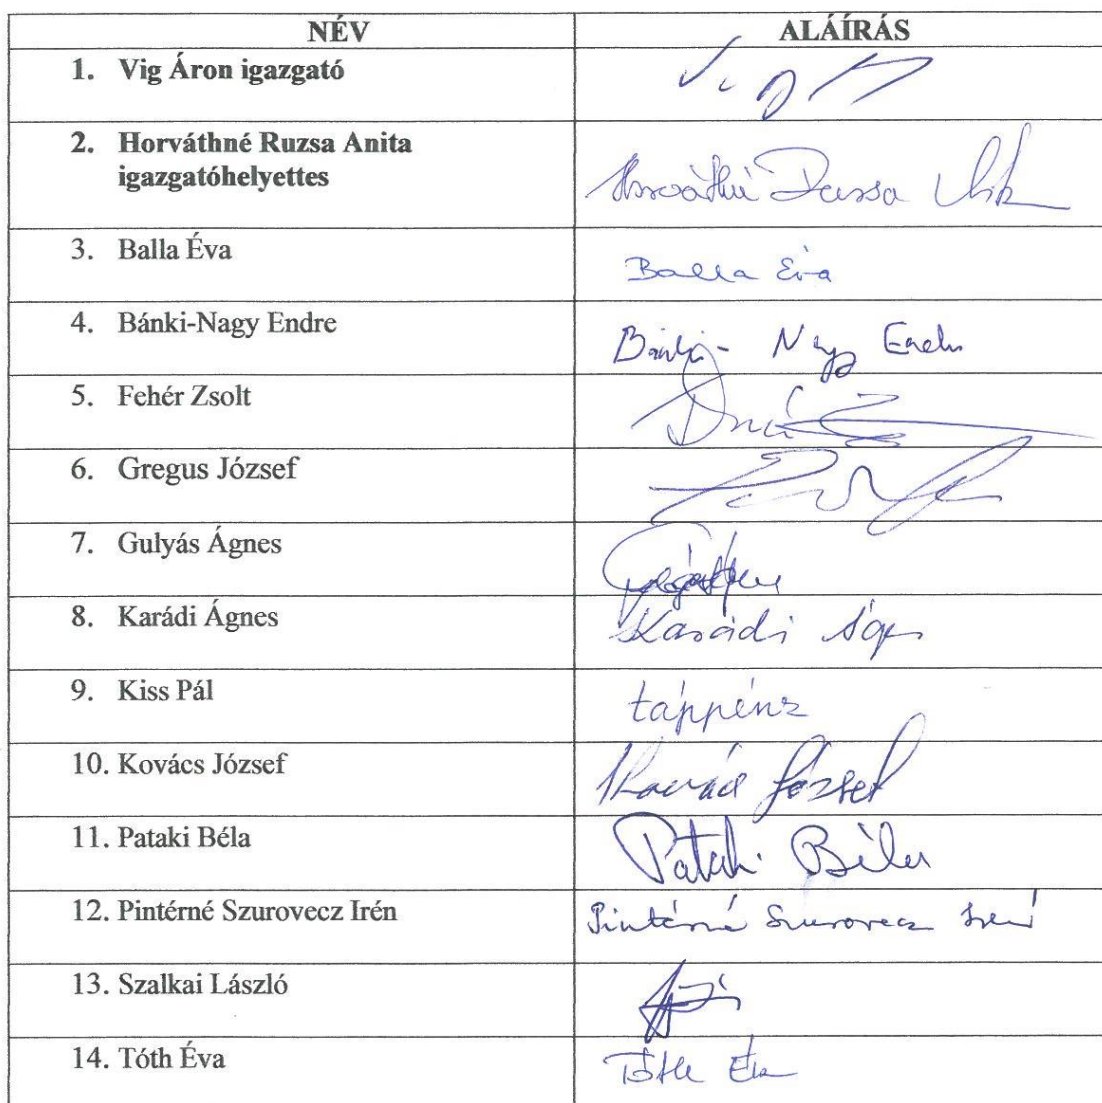 NÉV ALÁÍRÁS
1. Vig Áron igazgató
2. Horváthné Ruzsa Anita
igazgatóhelyettes
3. Balla Éva Balla Éva
4. Bánki-Nagy Endre Bánki-Nagy Endre
5. Fehér Zsolt
6. Gregus József
7. Gulyás Ágnes
8. Karádi Ágnes Karádi Ágnes
9. Kiss Pál táppénz
10. Kovács József Kovács József
11. Pataki Béla Pataki Béla
12. Pintérné Szurovecz Irén Pintérné Szurovecz Irén
13. Szalkai László
14. Tóth Éva Tóth Éva